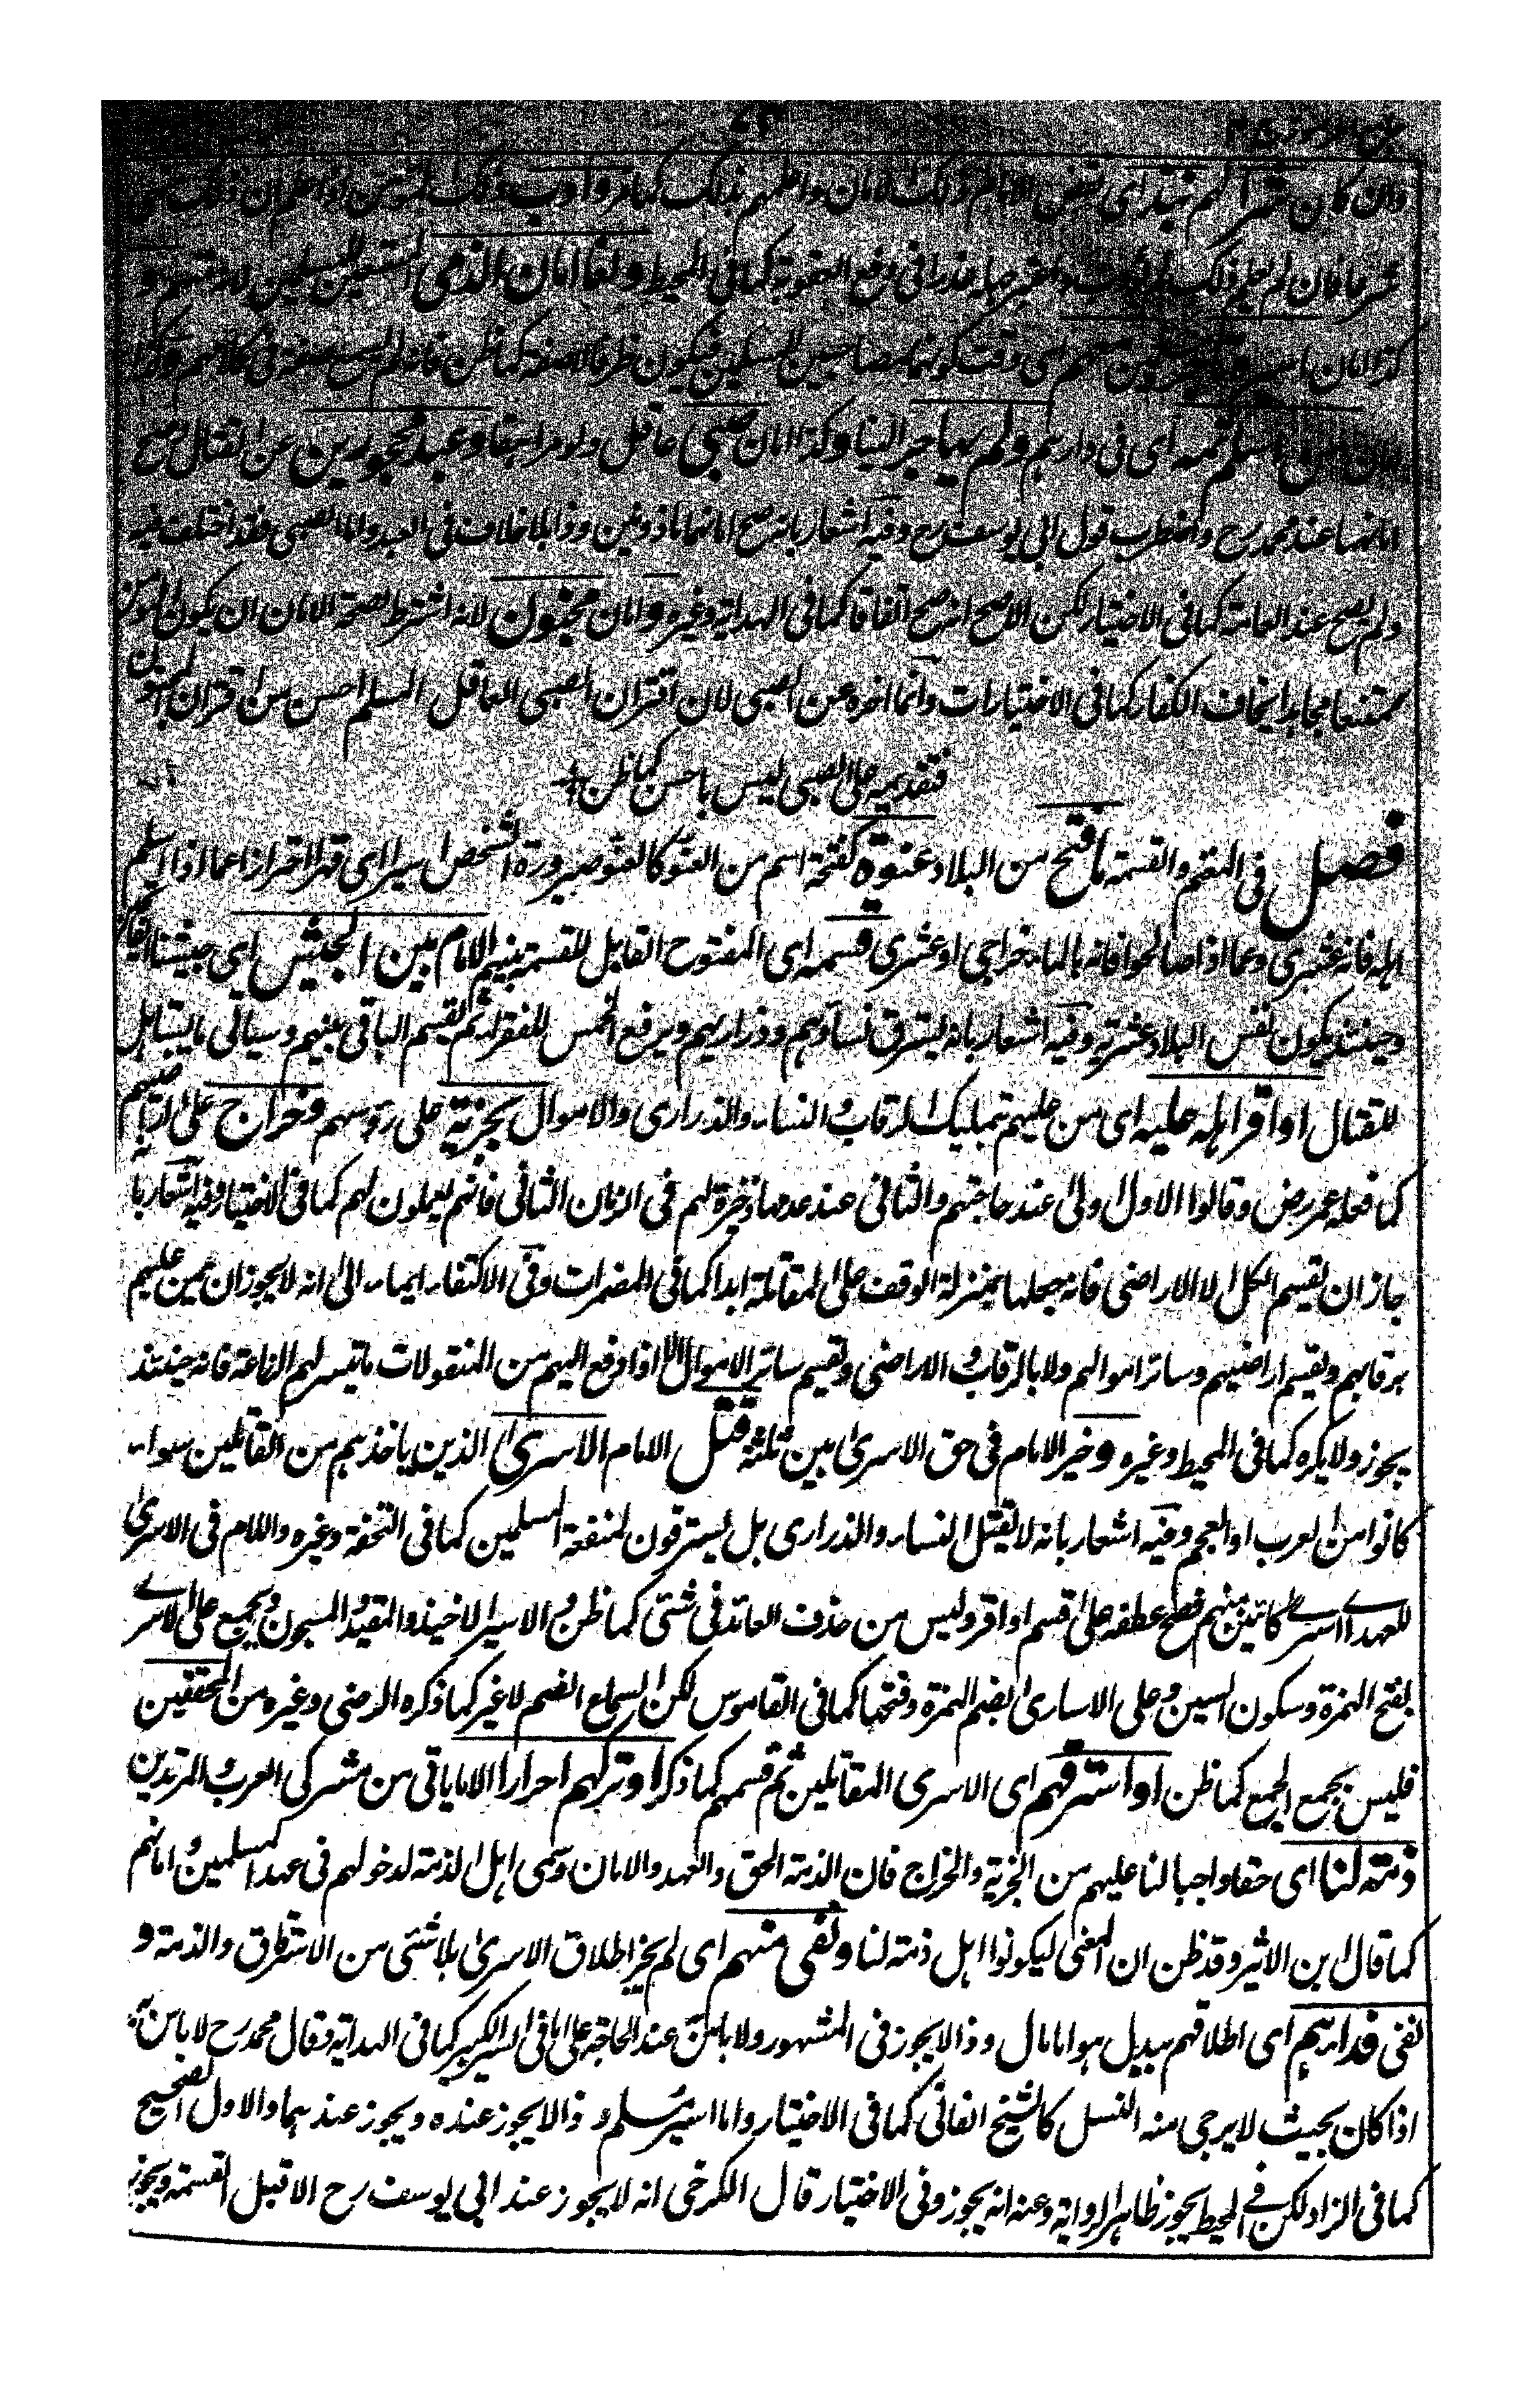 جامع الرموز ج ٢
وان كان شرا لهم نبذ اى نقض الامام ذلك الامان واعلمهم بذلك كما مر وادب ذلك المؤمن لو اعلم ان ذلك منهى
شرعا فان لم يعلم ذلك لم يؤدب واعتبر جهله عذرا فى دفع العقوبة كما فى المحيط ولغا امان الذمى المستعين للمسلمين لانه متهم و
كذا امان اسير وتاجر مسلمين معهم اى وقت كونهما مصاحبين للمسلمين فيكون ظرفا لا صفة كما ظن فانه لم يسمع صفة فى كلامهم وكذا
امان من اسلم ثمه اى فى دارهم ولم يهاجر الينا وكذا امان صبى عاقل ولو مراهقا وعبد محجورين عن القتال وصح
امانهما عند محمد رح واضطرب قول ابى يوسف رح وفيه اشعار بانه صح امانهما ماذونين وذا بلا خلاف فى العبد واما الصبى فقد اختلف فيه
ولم يصح عند العامة كما فى الاختيار لكن الاصح انه صح اتفاقا كما فى الهداية وغيره وامان مجنون لانه اشترط لصحة الامان ان يكون المؤمن
ممتنعا مجاهدا يخاف الكفار كما فى الاختيارات وانما اخره عن الصبى لان اقتران الصبى العاقل المسلم احسن من اقتران المجنون
فتقديمه على الصبى ليس باحسن كما ظن
فصل فى المغنم والقسمة ما فتح من البلاد عنوة كفتحة اسم من العنو كالعتو صيرورة الشخص اسيرا اى قهرا احترازا عما اذا اسلم
اهله فانه عشرى وعما اذا صالحوا فانه بالماء خراجى او عشرى قسمه اى المفتوح القابل للقسمة بينهم الامام بين الجيش اى جيشنا
وحينئذ يكون نفس البلاد عشرية وفيه اشعار بانه يسترق نساؤهم وذراريهم ويرفع الخمس للفقراء ثم يقسم الباقى بينهم وسياتى ما يتاهل
للقتال او اقر اهله عليه اى من عليهم بتمليك الرقاب والنساء والذرارى والاموال بجزية على رؤسهم وخراج على اراضيهم
كما فعله عمر رض وقالوا الاول اولى عند حاجتهم والثانى عند عدمها ذخيرة لهم فى الزمان الثانى فانهم يعملون لهم كما فى الاختيار وفيه اشعار بانه
جاز ان يقسم الكل الا الاراضى فانه جعلها بمنزلة الوقف على المقاتلة ابدا كما فى المضمرات وفى الاكتفاء ايماء الى انه لا يجوز ان يمن عليهم
برقابهم ويقسم اراضيهم وسائر اموالهم ولا بالرقاب والاراضى ويقسم سائر الاموال الا اذا دفع اليهم من المنقولات ما يتيسر لهم الزراعة فانه حينئذ
يجوز ولا يكره كما فى المحيط وغيره وخير الامام فى حق الاسرى بين ثلثة قتل الامام الاسرى الذين ياخذهم من المقاتلين سواء
كانوا من العرب او العجم وفيه اشعار بانه لا يقتل النساء والذرارى بل يسترقون لمنفعة المسلمين كما فى التحفة وغيره واللام فى الاسرى
للعهد اى اسرى كائنين منهم فصح عطفه على قسم او اقر وليس من حذف العائد فى شئ كما ظن والاسير الاخيذ والمقيد والمسجون ويجمع على الاسرى
بفتح الهمزة وسكون السين وعلى الاسارى بضم الهمزة وفتحها كما فى القاموس لكن السماع الضم لا غير كما ذكره الرضى وغيره من المحققين
فليس بجمع الجمع كما ظن او استرقهم اى الاسرى المقاتلين ثم قسمهم كما ذكر او تركهم احرارا الا ما ياتى من مشركى العرب والمرتدين
ذمة لنا اى حقا واجبا لنا عليهم من الجزية والخراج فان الذمة الحق والعهد والامان وسمى اهل الذمة لدخولهم فى عهد المسلمين وامانهم
كما قال ابن الاثير وقد ظن ان المعنى ليكونوا اهل ذمة لنا ونفى منهم اى لم يجز اطلاق الاسرى بلا شئ من الاسترقاق والذمة و
نفى فداءهم اى اطلاقهم ببدل هو اما مال وذا لا يجوز فى المشهور ولا باس به عند الحاجة على ما فى السير الكبير كما فى الهداية وقال محمد رح لا باس به
اذا كان بحيث لا يرجى منه النسل كالشيخ الفانى كما فى الاختيار واما اسير مسلم وذا لا يجوز عنده ويجوز عندهما والاول الصحيح
كما فى الزاد لكن فى المحيط يجوز ظاهر الرواية وعنه انه يجوز وفى الاختيار قال الكرخى انه لا يجوز عند ابى يوسف رح الا قبل القسمة ويجوز